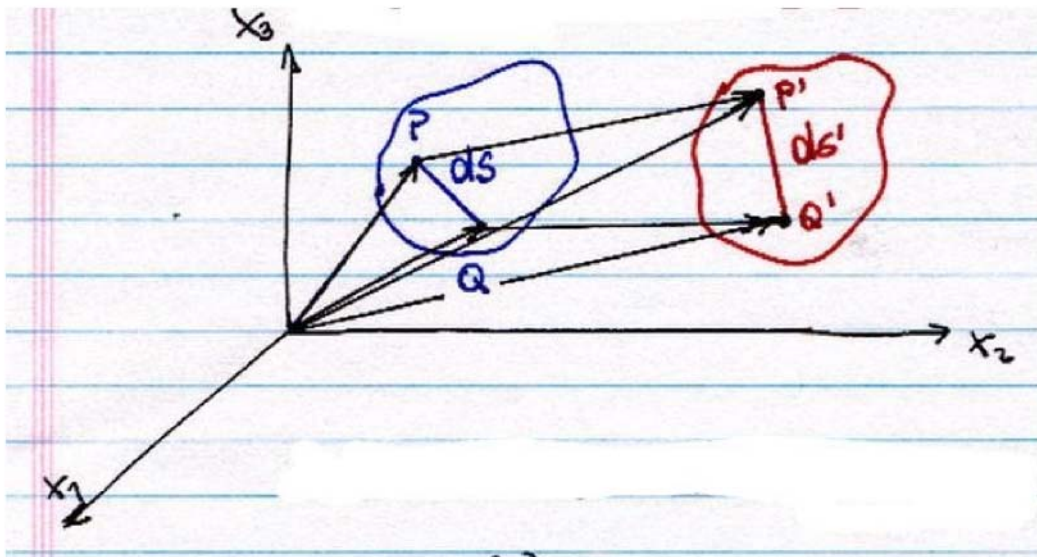 X₃
P
dS
P'
dS'
Q'
Q
X₂
X₁